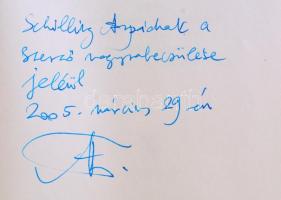 Schilling Árpádnak a
szerző nagyrabecsülése
jeléül
2005. március 29-én